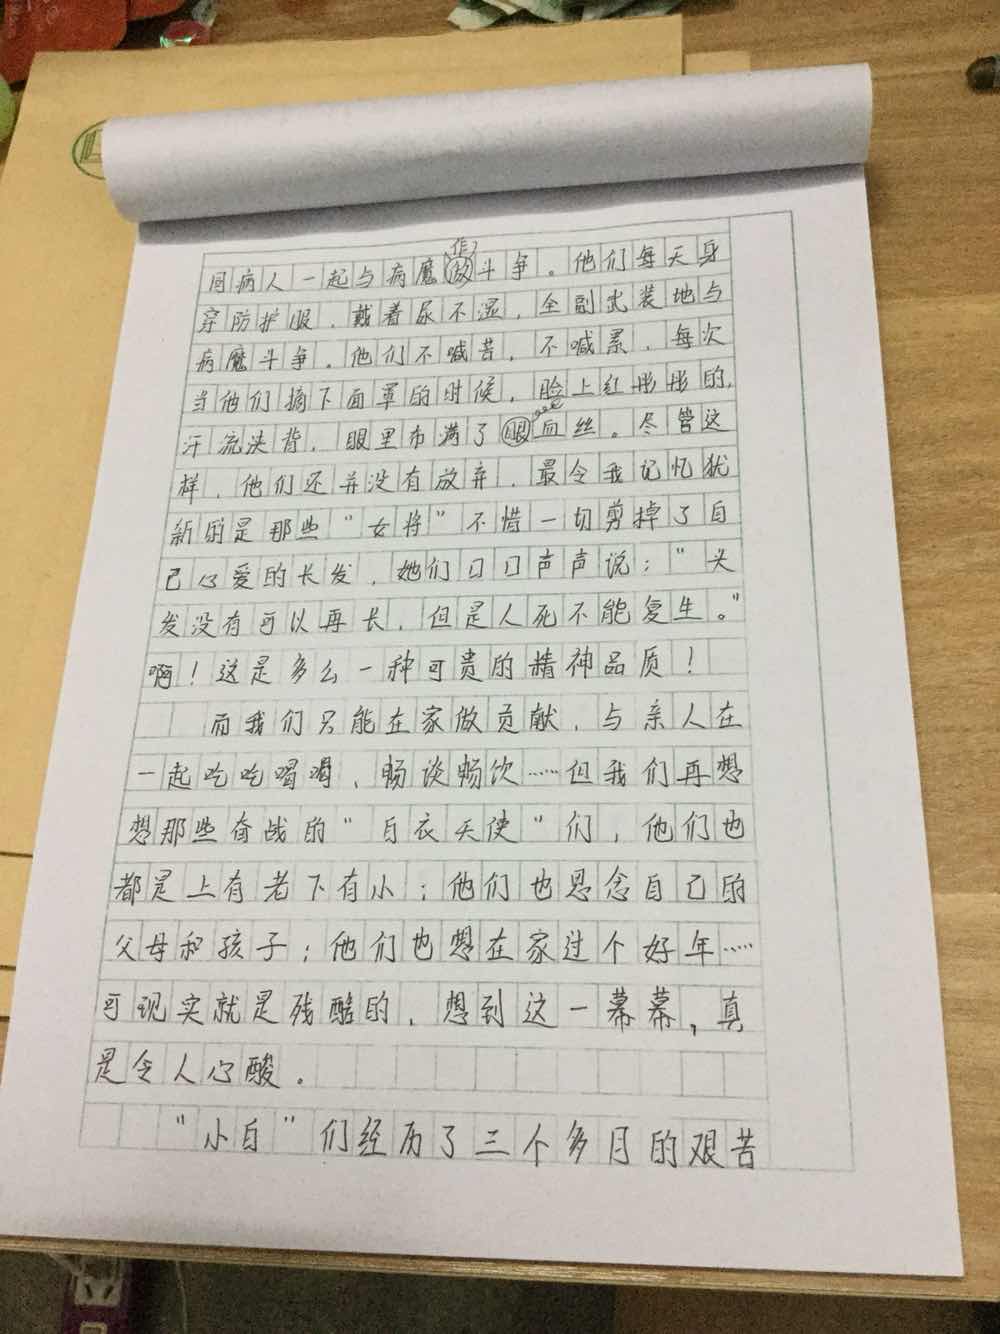 同病人一起与病魔作斗争。他们每天身
穿防护服,戴着尿不湿,全副武装地与
病魔斗争。他们不喊苦,不喊累,每次
当他们摘下面罩的时候,脸上红彤彤的,
汗流浃背,眼里布满了血丝。尽管这
样,他们还并没有放弃,最令我记忆犹
新的是那些“女将”不惜一切剪掉了自
己心爱的长发,她们口口声声说:“头
发没有可以再长,但是人死不能复生。”
啊!这是多么一种可贵的精神品质!
而我们只能在家做贡献,与亲人在
一起吃吃喝喝、畅谈畅饮……但我们再想
想那些奋战的“白衣天使”们,他们也
都是上有老下有小;他们也思念自己的
父母和孩子;他们也想在家过个好年……
可现实就是残酷的,想到这一幕幕,真
是令人心酸。
“小白”们经历了三个多月的艰苦